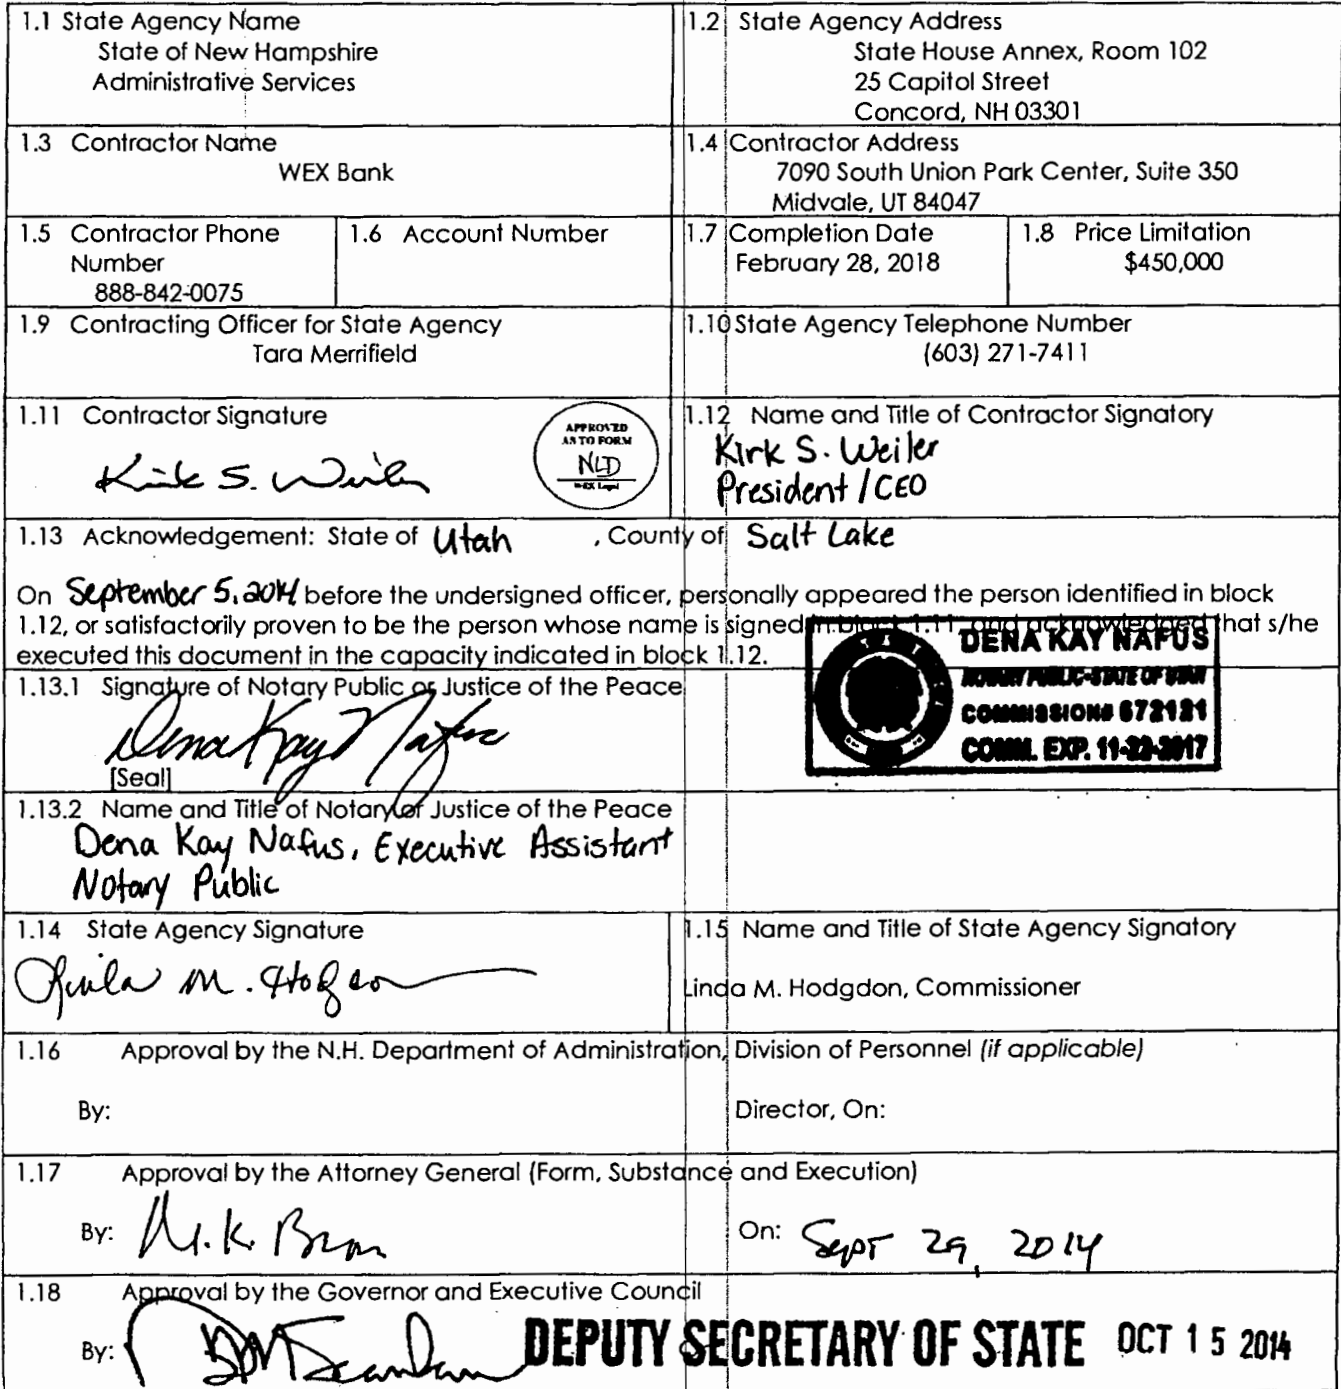 1.1 State Agency Name
State of New Hampshire
Administrative Services
1.2 State Agency Address
State House Annex, Room 102
25 Capitol Street
Concord, NH 03301
1.3 Contractor Name
WEX Bank
1.4 Contractor Address
7090 South Union Park Center, Suite 350
Midvale, UT 84047
1.5 Contractor Phone
Number
888-842-0075
1.6 Account Number
1.7 Completion Date
February 28, 2018
1.8 Price Limitation
$450,000
1.9 Contracting Officer for State Agency
Tara Merrifield
1.10 State Agency Telephone Number
(603) 271-7411
1.11 Contractor Signature
Kirk S. Weiler
APPROVED
AS TO FORM
NLD
WEX Legal
1.12 Name and Title of Contractor Signatory
Kirk S. Weiler
President / CEO
1.13 Acknowledgement: State of Utah , County of Salt Lake
On September 5, 2014 before the undersigned officer, personally appeared the person identified in block
1.12, or satisfactorily proven to be the person whose name is signed in block 1.11, and acknowledged that s/he
executed this document in the capacity indicated in block 1.12.
DENA KAY NAFUS
NOTARY PUBLIC-STATE OF UTAH
COMMISSION# 672121
COMM. EXP. 11-22-2017
1.13.1 Signature of Notary Public or Justice of the Peace
Dena Kay Nafus
[Seal]
1.13.2 Name and Title of Notary or Justice of the Peace
Dena Kay Nafus, Executive Assistant
Notary Public
1.14 State Agency Signature
Linda M. Hodgdon
1.15 Name and Title of State Agency Signatory
Linda M. Hodgdon, Commissioner
1.16 Approval by the N.H. Department of Administration, Division of Personnel (if applicable)
By:
Director, On:
1.17 Approval by the Attorney General (Form, Substance and Execution)
By: M.K. Brown
On: Sept 29, 2014
1.18 Approval by the Governor and Executive Council
By:
DEPUTY SECRETARY OF STATE OCT 15 2014